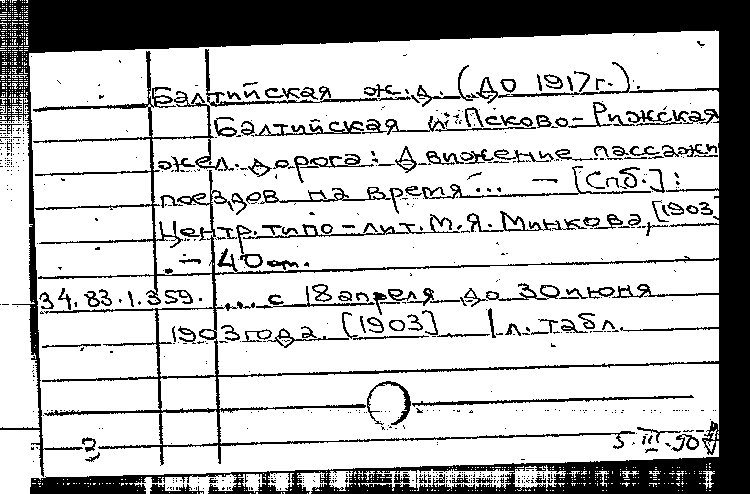 Балтийская ж.д. (до 1917г.).
Балтийская и Псково-Рижская
жел. дорога: Движение пассажи
поездов на время... — [Спб.]:
Центр. типо-лит. М.Я. Минкова, [1903]
. — 40 см.
34.83.1.359. ... с 18 апреля до 30 июня
1903 года. [1903]. 1 л. табл.
5.III.90